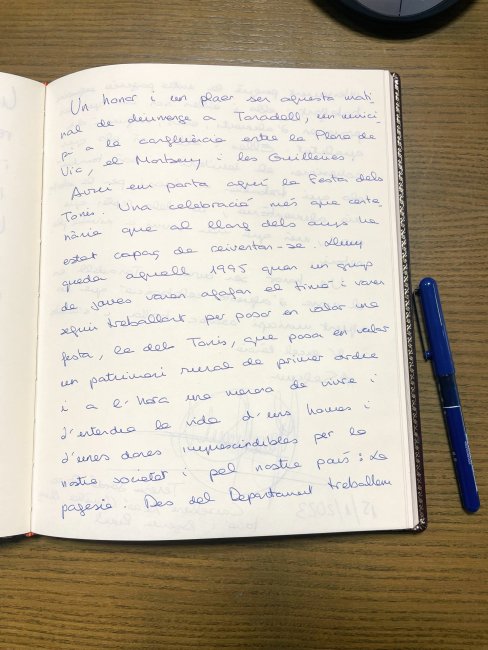 Un honor i un plaer ser aquesta mati-
nal de diumenge a Taradell, un munici-
pi a la confluència entre la Plana de
Vic, el Montseny i les Guilleries.
Avui em porta aquí la Festa dels
Tonis. Una celebració més que cente-
nària que al llarg dels anys ha
estat capaç de reinventar-se. Lluny
queda aquell 1995 quan un grup
de joves varen agafar el timó i varen
seguir treballant per posar en valor una
festa, la dels Tonis, que posa en valor
un patrimoni rural de primer ordre
i a l'hora una manera de viure i
d'entendre la vida d'uns homes i
d'unes dones imprescindibles per la
nostra societat i pel nostre país: la
pagesia. Des del Departament treballem